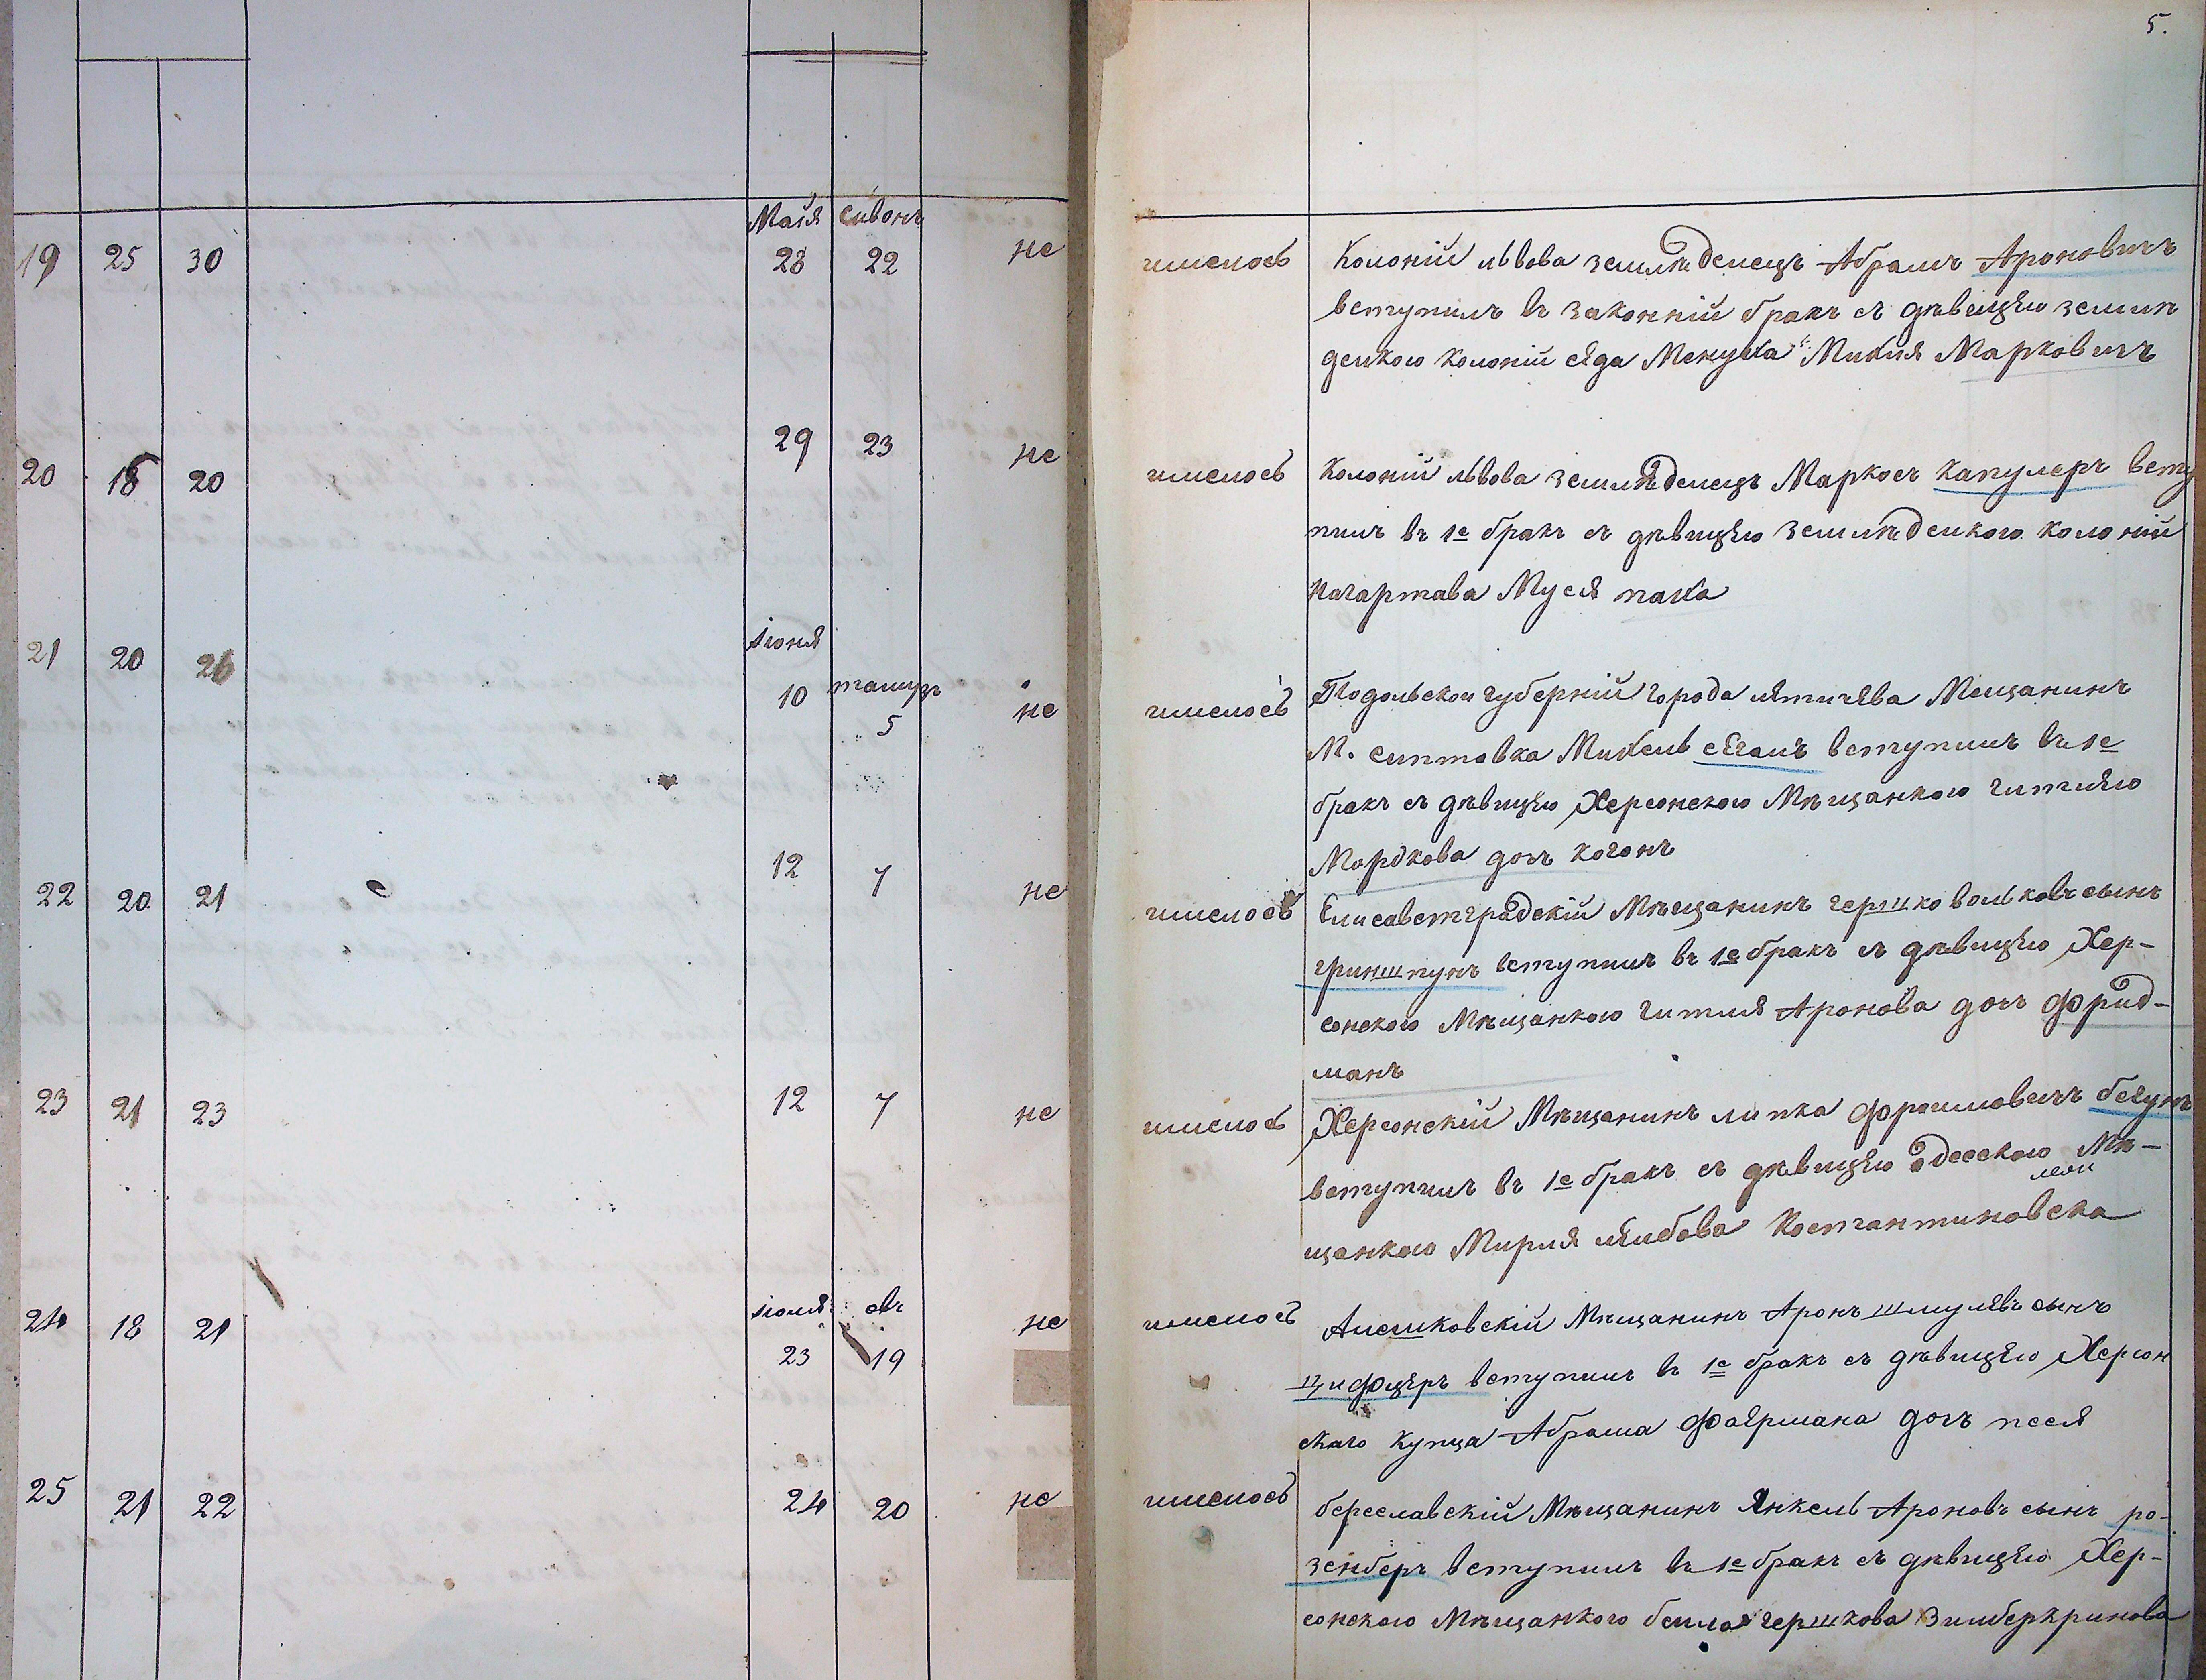 5.
Маія сивонъ
19 25 30 28 22 не имелось Колоній львова земнлѣделецъ Абрамъ Ароновичъ
вступилъ въ законній бракъ съ дѣвицѣю землѣ
делкою колоній Менуха Михля Марковичъ
20 18 20 29 23 не имелось Колоній львова землѣделецъ Маркосъ капулеръ всту
пилъ въ 1е бракъ съ дѣвицѣю землѣделкою колоній
нагартава Муся паха
іюня
21 20 26 10 тамузъ 5 не имелось Подольской губерній города лятичява Мещанинъ
М. Михель вступилъ въ 1е
бракъ съ дѣвицѣю Херсонскою Мѣщанкою
Мордкова доч когонъ
22 20 21 12 7 не имелось Елисаветградскій Мѣщанинъ гершко волковъ сынъ
гриншпунъ вступилъ въ 1е бракъ съ дѣвицѣю Хер-
сонскою Мѣщанкою гитля Аронова доч фрид-
манъ
23 21 23 12 7 не имелось Херсонскій Мѣщанинъ липка фроимовичъ
вступилъ въ 1е бракъ съ дѣвицѣю одесскою Мѣ-
щанкою Мирля лейбова Костантиновска
іюля овъ
24 18 21 23 19 не имелось Алешковскій Мѣщанинъ Аронъ шмулявъ сынъ
вступилъ въ 1е бракъ съ дѣвицѣю Херсон
скаго купца Абрама фаярмана доч песя
25 21 22 24 20 не имелось береславскій Мѣщанинъ Янкель Ароновъ сынъ ро-
зенберъ вступилъ въ 1е бракъ съ дѣвицѣю Хер-
сонскою Мѣщанкою бейла гершкова Зильберкринова